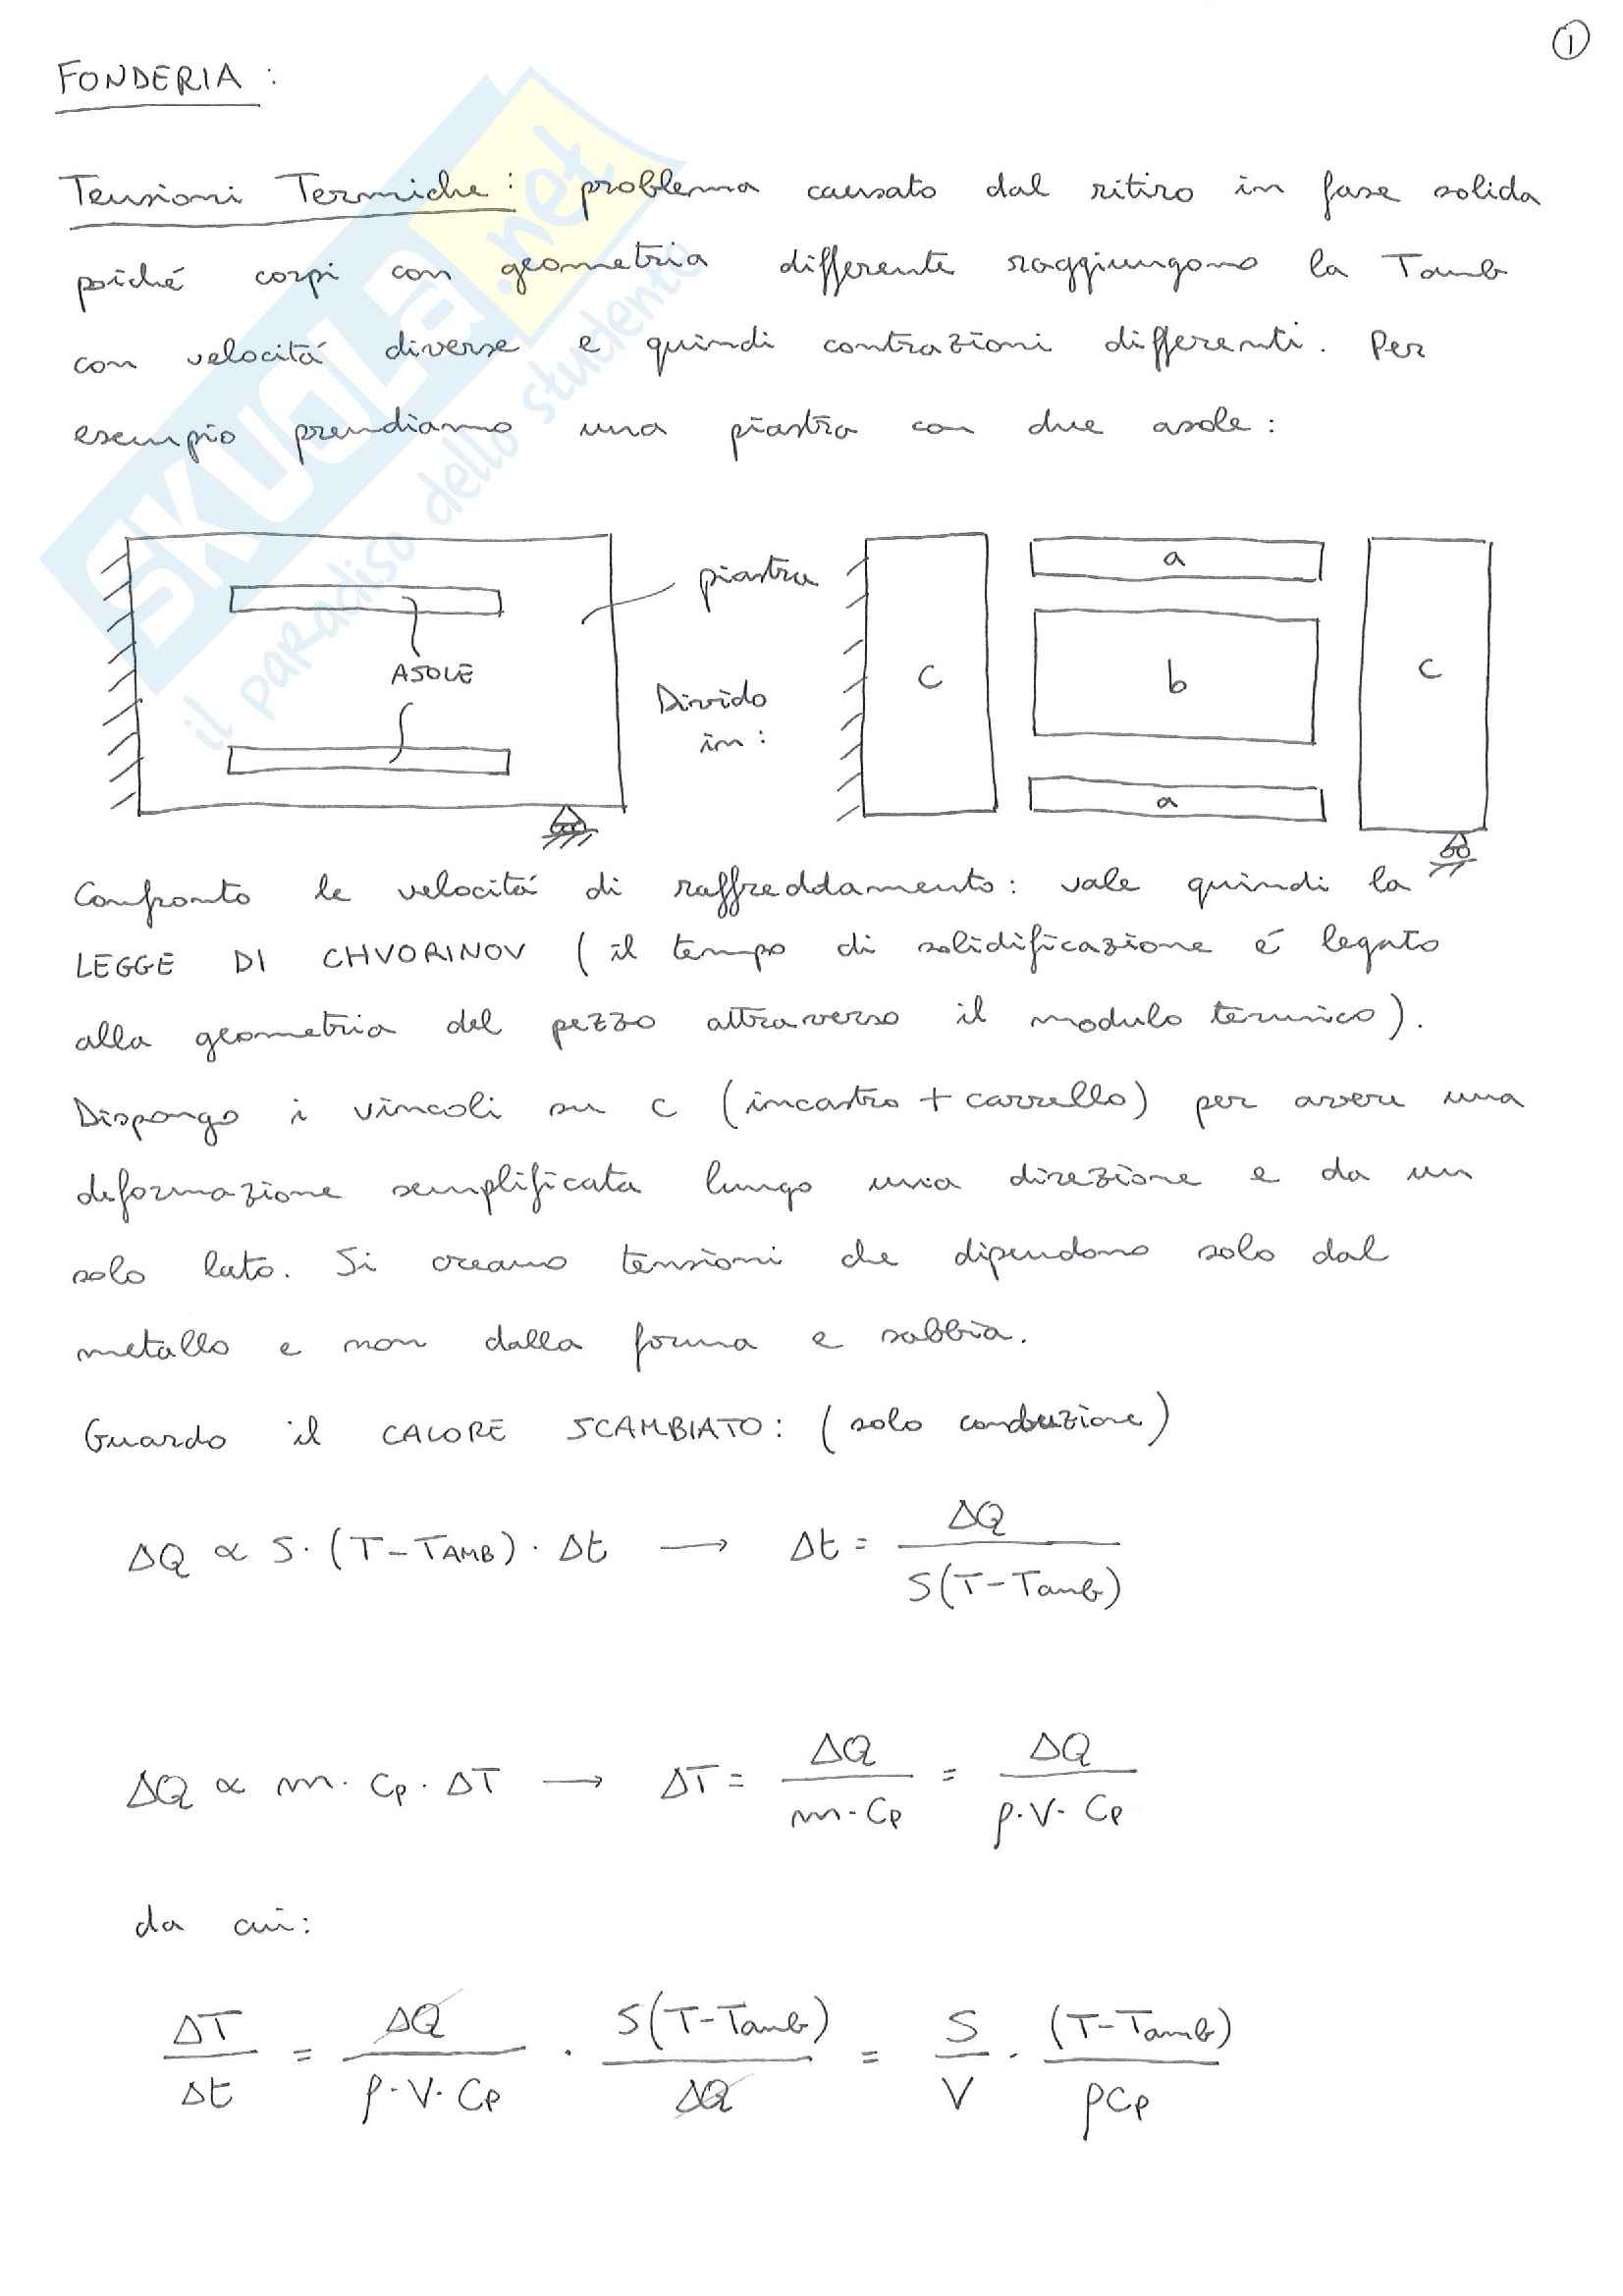 ①
FONDERIA :
Tensioni Termiche : problema causato dal ritiro in fase solida
poiché corpi con geometria differente raggiungono la Tamb
con velocitá diverse e quindi contrazioni differenti. Per
esempio prendiamo una piastra con due asole :
piastra
ASOLE
Divido
in :
c
a
b
a
c
Confronto le velocitá di raffreddamento : vale quindi la
LEGGE DI CHVORINOV ( il tempo di solidificazione é legato
alla geometria del pezzo attraverso il modulo termico ).
Dispongo i vincoli su c ( incastro + carrello ) per avere una
deformazione semplificata lungo una direzione e da un
solo lato. Si creano tensioni che dipendono solo dal
metallo e non dalla forma e sabbia.
Guardo il CALORE SCAMBIATO : ( solo conduzione )
ΔQ ∝ S · (T - TAMB) · Δt → Δt = ΔQ / S(T - Tamb)
ΔQ ∝ m · Cp · ΔT → ΔT = ΔQ / m · Cp = ΔQ / ρ · V · Cp
da cui :
ΔT / Δt = ΔQ / ρ · V · Cp · S(T - Tamb) / ΔQ = S / V · (T - Tamb) / ρCp
SKUOLA.net
il paradiso dello studente